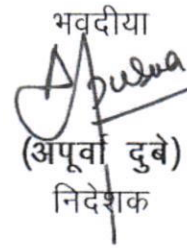 भवदीया
Apurva
(अपूर्वा दुबे)
निदेशक